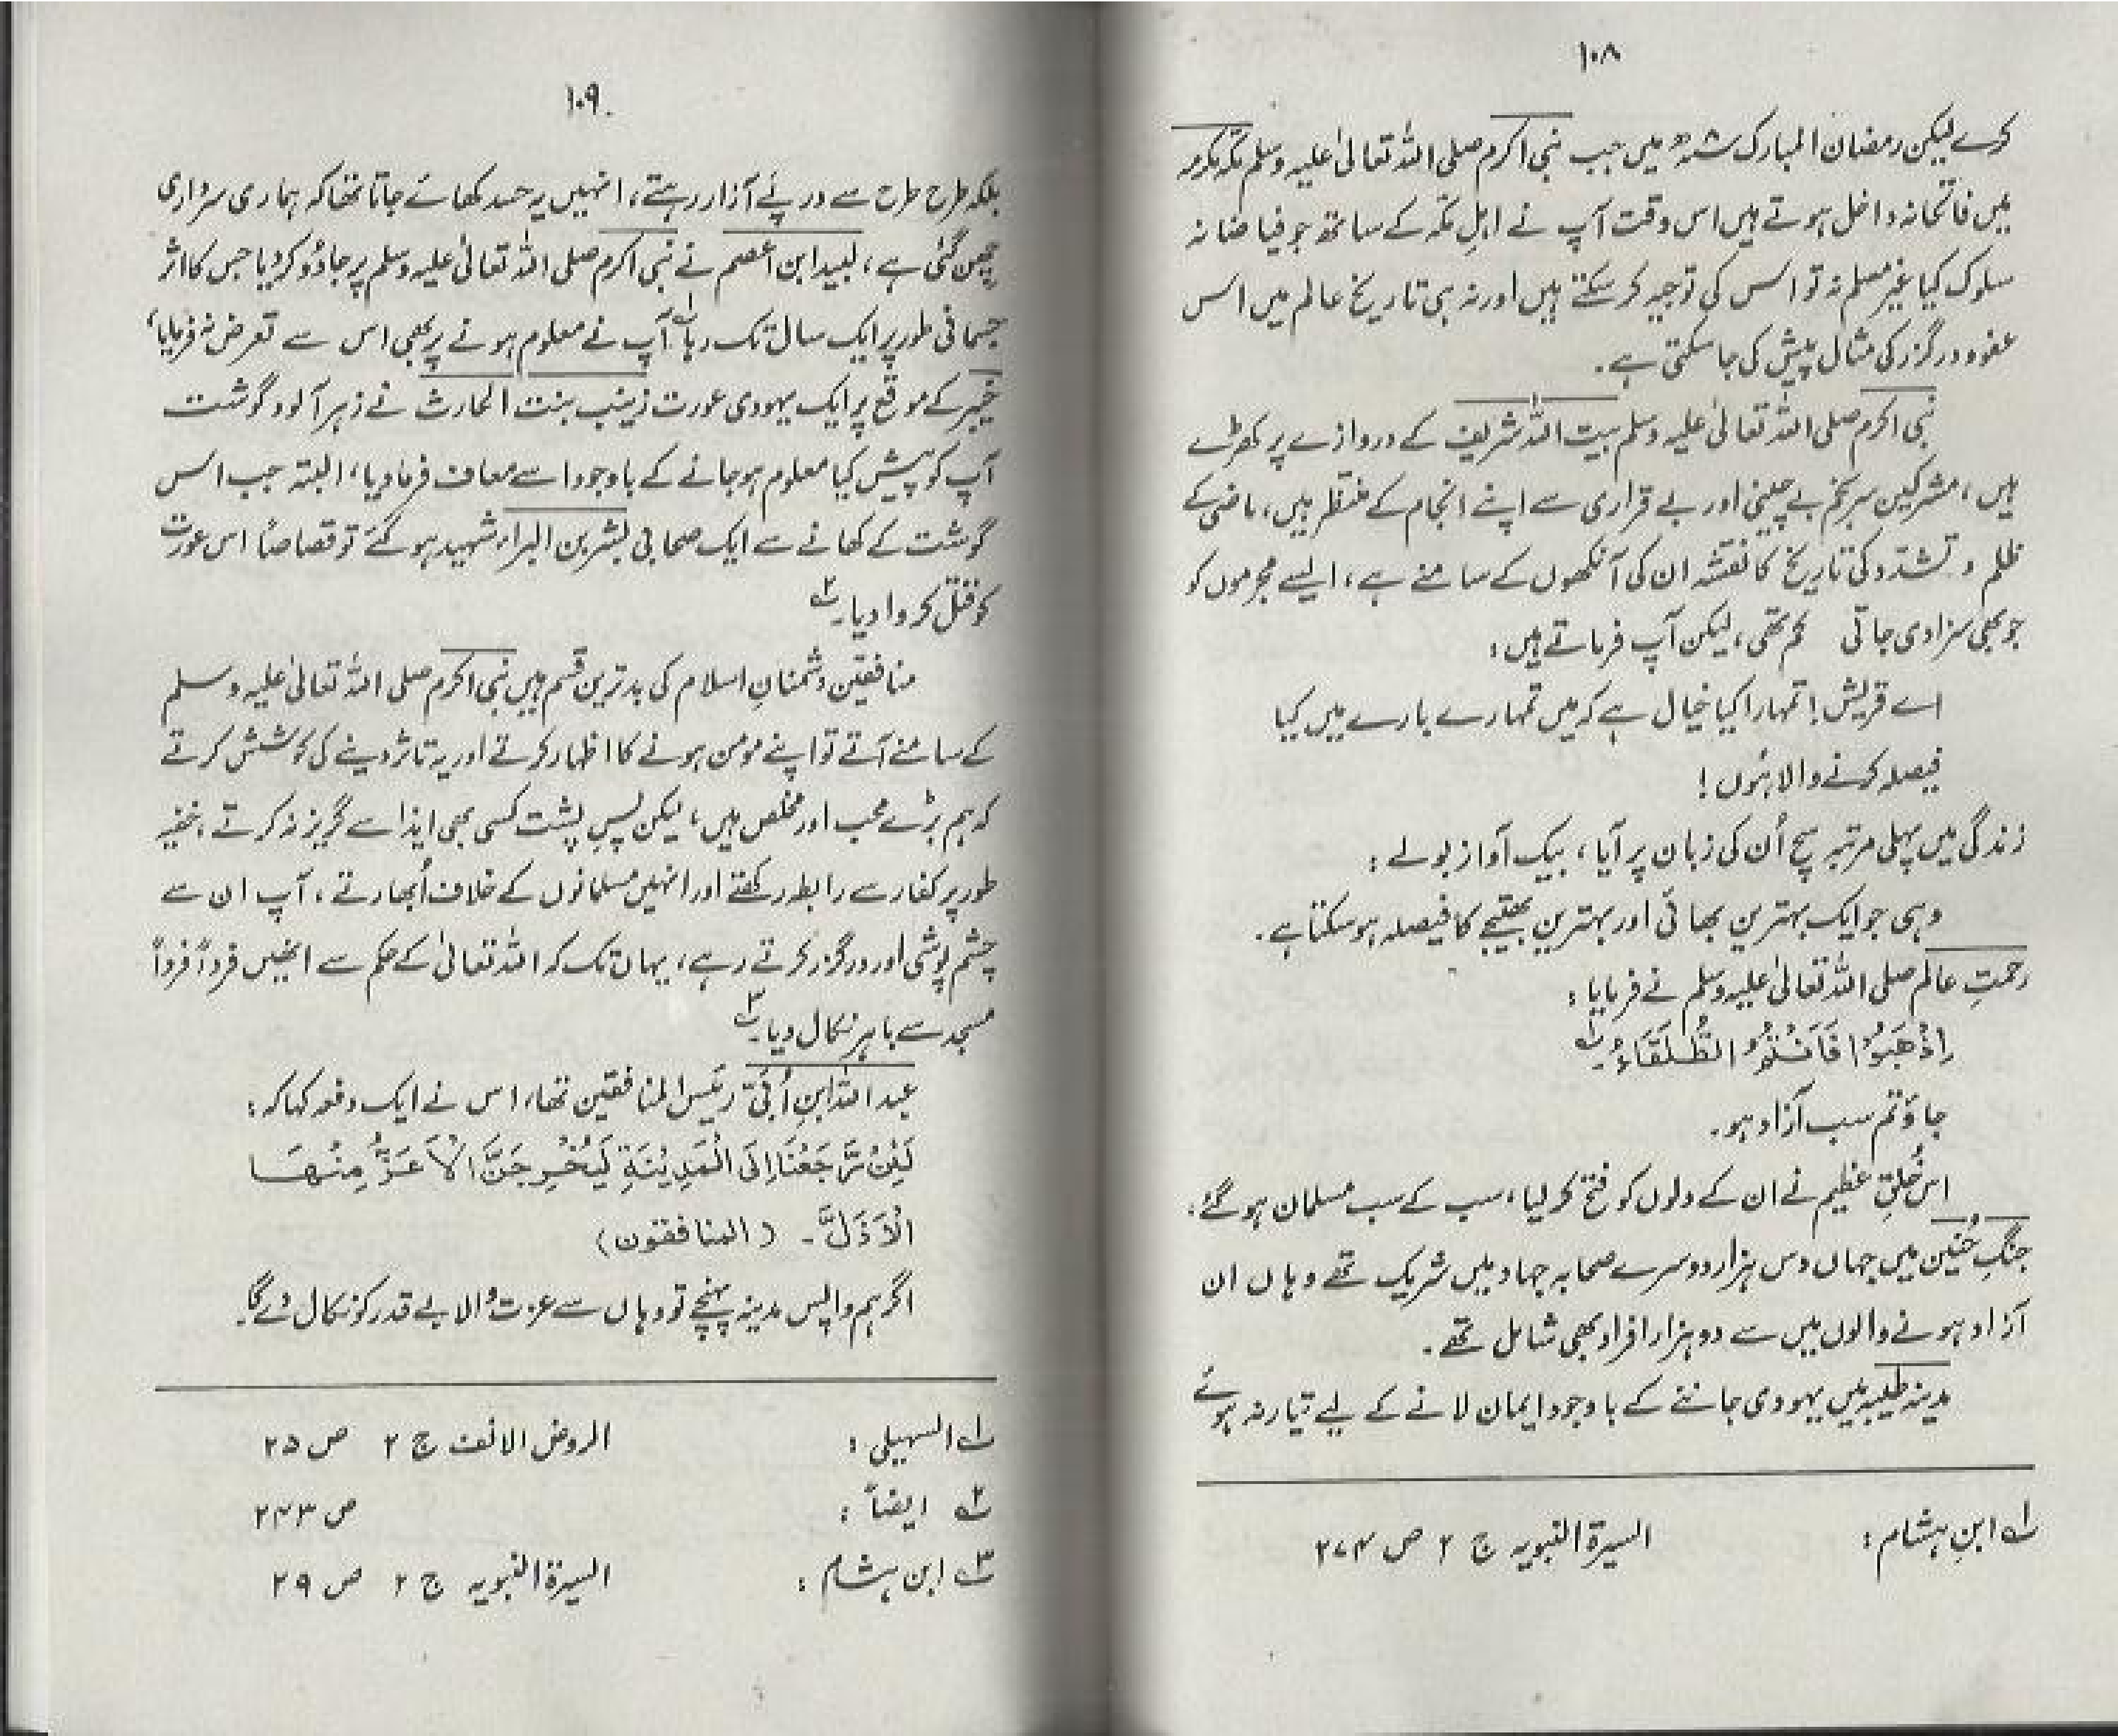 ۱۰۸
کرے لیکن رمضان المبارک ۸ھ میں جب نبی اکرم صلی اللہ تعالیٰ علیہ وسلم مکہ مکرمہ
میں فاتحانہ داخل ہوتے ہیں اس وقت آپ نے اہلِ مکہ کے ساتھ جو فیاضانہ
سلوک کیا غیر مسلم نہ تو اس کی توجیہ کر سکتے ہیں اور نہ ہی تاریخِ عالم میں اس
عفو و درگزر کی مثال پیش کی جا سکتی ہے۔
نبی اکرم صلی اللہ تعالیٰ علیہ وسلم بیت اللہ شریف کے دروازے پر کھڑے
ہیں، مشرکین سربخم بے چینی اور بے قراری سے اپنے انجام کے منتظر ہیں، ماضی کے
ظلم و تشدّد کی تاریخ کا نقشہ ان کی آنکھوں کے سامنے ہے، ایسے مجرموں کو
جو بھی سزا دی جاتی کم تھی، لیکن آپ فرماتے ہیں:
اے قریش! تمہارا کیا خیال ہے کہ میں تمہارے بارے میں کیا
فیصلہ کرنے والا ہُوں!
زندگی میں پہلی مرتبہ سچ اُن کی زبان پر آیا، بیک آواز بولے:
وہی جو ایک بہترین بھائی اور بہترین بھتیجے کا فیصلہ ہو سکتا ہے۔
رحمتِ عالم صلی اللہ تعالیٰ علیہ وسلم نے فرمایا:
اِذْهَبُوْا فَاَنْتُمُ الطُّلَقَاءُ۔ ۱؎
جاؤ تم سب آزاد ہو۔
اس خُلقِ عظیم نے ان کے دلوں کو فتح کر لیا، سب کے سب مسلمان ہو گئے،
جنگِ حُنین میں جہاں دس ہزار دوسرے صحابہ جہاد میں شریک تھے وہاں ان
آزاد ہونے والوں میں سے دو ہزار افراد بھی شامل تھے۔
مدینہ طیبہ میں یہودی جاننے کے باوجود ایمان لانے کے لیے تیار نہ ہوئے
۱؎ ابنِ ہشام: السیرۃ النبویہ ج ۲ ص ۲۷۴
۱۰۹
بلکہ طرح طرح سے درپئے آزار رہتے، انہیں یہ حسد کھائے جاتا تھا کہ ہماری سرداری
چھن گئی ہے، لبید ابن اعصم نے نبی اکرم صلی اللہ تعالیٰ علیہ وسلم پر جادُو کر دیا جس کا اثر
جسمانی طور پر ایک سال تک رہا ۱؎ آپ نے معلوم ہونے پر بھی اس سے تعرض نہ فرمایا،
خیبر کے موقع پر ایک یہودی عورت زینب بنت الحارث نے زہر آلود گوشت
آپ کو پیش کیا معلوم ہو جانے کے باوجود اسے معاف فرما دیا، البتہ جب اس
گوشت کے کھانے سے ایک صحابی بشر بن البراء شہید ہو گئے تو قصاصًا اس عورت
کو قتل کروا دیا۔ ۲؎
منافقین دشمنانِ اسلام کی بدترین قسم ہیں نبی اکرم صلی اللہ تعالیٰ علیہ وسلم
کے سامنے آتے تو اپنے مومن ہونے کا اظہار کرتے اور یہ تاثر دینے کی کوشش کرتے
کہ ہم بڑے محب اور مخلص ہیں، لیکن پسِ پشت کسی بھی ایذا سے گریز نہ کرتے، خفیہ
طور پر کفار سے رابطہ رکھتے اور انہیں مسلمانوں کے خلاف اُبھارتے، آپ ان سے
چشم پوشی اور درگزر کرتے رہے، یہاں تک کہ اللہ تعالیٰ کے حکم سے انہیں فرداً فرداً
مسجد سے باہر نکال دیا۔ ۳؎
عبداللہ ابنِ اُبَیّ رئیس المنافقین تھا، اس نے ایک دفعہ کہا کہ:
لَئِنْ رَّجَعْنَا اِلَی الْمَدِیْنَةِ لَیُخْرِجَنَّ الْاَعَزُّ مِنْهَا
الْاَذَلَّ۔ (المنافقون)
اگر ہم واپس مدینہ پہنچے تو وہاں سے عزت والا بے قدر کو نکال دے گا۔
۱؎ السہیلی: الروض الانف ج ۲ ص ۲۵
۲؎ ایضاً: ص ۲۴۳
۳؎ ابن ہشام: السیرۃ النبویہ ج ۲ ص ۲۹